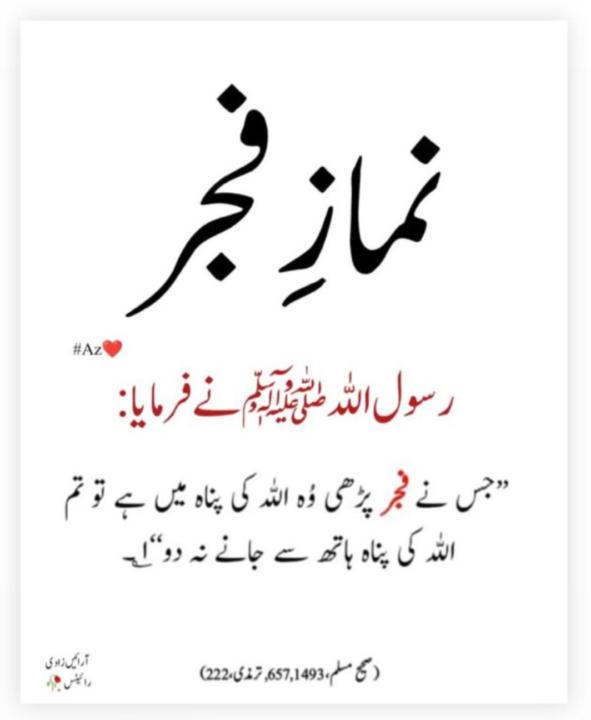 نمازِ فجر
#Az❤️
رسول اللہ ﷺ نے فرمایا:
”جس نے فجر پڑھی وُہ اللہ کی پناہ میں ہے تو تم
اللہ کی پناہ ہاتھ سے جانے نہ دو“۱؎
(صحیح مسلم،657,1493, ترمذی،222)
آرائیں زادی
رائیٹس🥀